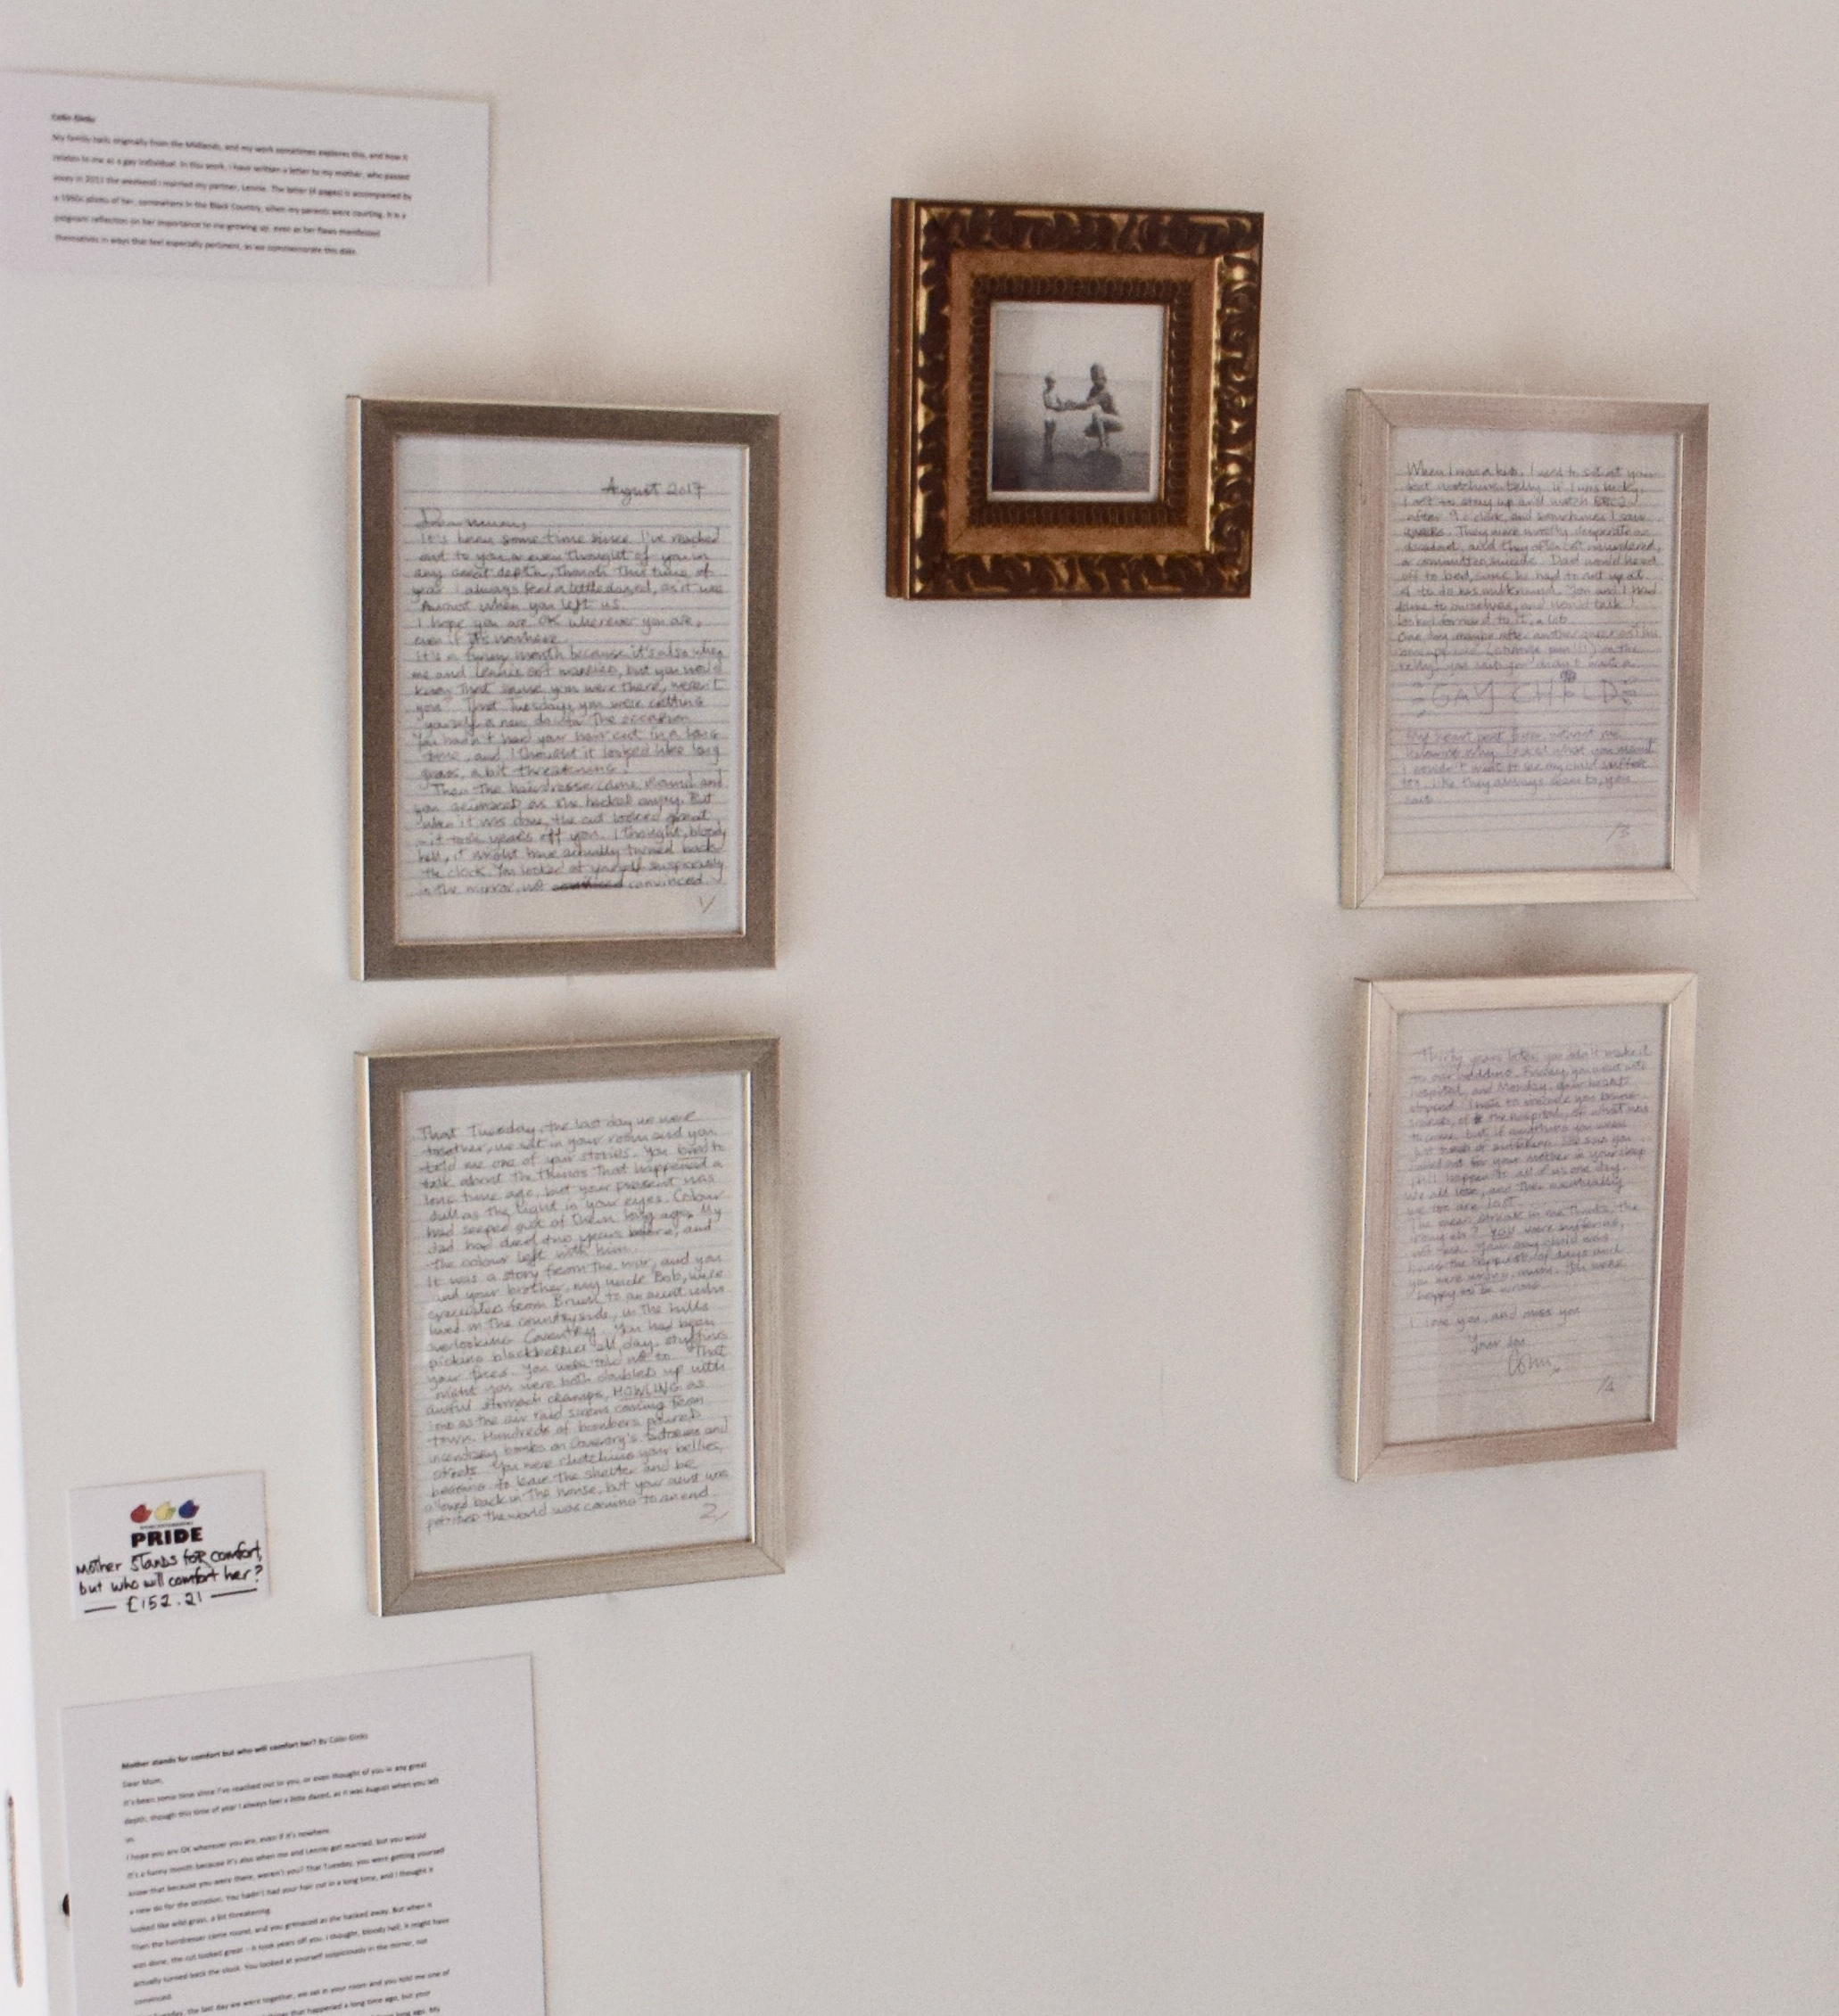 Colin
My family hails originally from the Midlands, and my work sometimes explores this, and how it
relates to me as a gay individual. In this work, I have written a letter to my mother, who passed
away in 2011 the weekend I married my partner, Lennie. The letter (4 pages) is accompanied by
a 1950s photo of her, somewhere in the Black Country, when my parents were courting. It is a
poignant reflection on her importance to me growing up, even as her flaws manifested
themselves in ways that feel especially pertinent, as we commemorate this date.
August 2017
Dear Mum,
It's been some time since I've reached
out to you or even thought of you in
any great depth, though this time of
year I always feel a little dazed, as it was
August when you left us.
I hope you are OK wherever you are,
even if it's nowhere.
It's a funny month because it's also when
me and Lennie got married, but you would
know that cause you were there, weren't
you? That Tuesday, you were getting
yourself a new do for the occasion.
You hadn't had your hair cut in a long
time, and I thought it looked like long
grass, a bit threatening.
Then the hairdresser came round and
you grimaced as she hacked away. But
when it was done, the cut looked great
- it took years off you. I thought, bloody
hell, it might have actually turned back
the clock. You looked at yourself suspiciously
in the mirror, not convinced.
1/
That Tuesday, the last day we were
together, we sat in your room and you
told me one of your stories. You loved to
talk about the things that happened a
long time ago, but your present was
dull as the light in your eyes. Colour
had seeped out of them long ago. My
dad had died two years before, and
the colour left with him.
It was a story from the war, and you
and your brother, my uncle Bob, were
evacuated from Brum, to an aunt who
lived in the countryside, in the hills
overlooking Coventry. You had been
picking blackberries all day, stuffing
your faces. You were told not to. That
night you were both doubled up with
awful stomach cramps, HOWLING as
loud as the air raid sirens coming from
town. Hundreds of bombers poured
incendiary bombs on Coventry's factories and
streets. You were clutching your bellies,
begging to leave the shelter and be
allowed back in the house, but your aunt was
petrified the world was coming to an end.
2/
When I was a kid, I used to sit at your
feet watching telly. If I was lucky,
I got to stay up and watch BBC2
after 9 o'clock, and sometimes I saw
They were mostly desperate or
decadent, and they often got murdered,
or committed suicide. Dad would head
off to bed, cause he had to get up at
4 to do his milk round. You and I had
time to ourselves, and we'd talk. I
looked forward to it, a lot.
One day, maybe after another queer
telly, you said you didn't want a
GAY CHILD
My heart beat faster, without me
knowing why. I asked what you meant.
I wouldn't want to see my child suffer
like they always seem to, you
said.
/3
Thirty years later, you didn't make it
to our wedding. Friday, you went into
hospital, and Monday, your heart
stopped. I hate to
the hospital, of what was
to come, but, if anything you were
just tired of suffering. She said you
called out for your mother in your sleep
happen to all of us one day.
We all lose, and then eventually
we too are lost.
The mean streak in me thinks, the
YOU were suffering,
not me. Your gay child was
having the happiest of days and
you were wrong, mum. You were
happy to be wrong.
I love you, and miss you
Your son
Colin
/4
PRIDE
Mother Stands for comfort,
but who will comfort her?
£152.21
Mother stands for comfort but who will comfort her? By Colin
Dear Mum,
It's been some time since I've reached out to you, or even thought of you in any great
depth, though this time of year I always feel a little dazed, as it was August when you left
us.
I hope you are OK wherever you are, even if it's nowhere.
It's a funny month because it's also when me and Lennie got married, but you would
know that because you were there, weren't you? That Tuesday, you were getting yourself
a new do for the occasion. You hadn't had your hair cut in a long time, and I thought it
looked like wild grass, a bit threatening.
Then the hairdresser came round, and you grimaced as she hacked away. But when it
was done, the cut looked great – it took years off you. I thought, bloody hell, it might have
actually turned back the clock. You looked at yourself suspiciously in the mirror, not
convinced.
Tuesday, the last day we were together, we sat in your room and you told me one of
things that happened a long time ago, but your
long ago. My